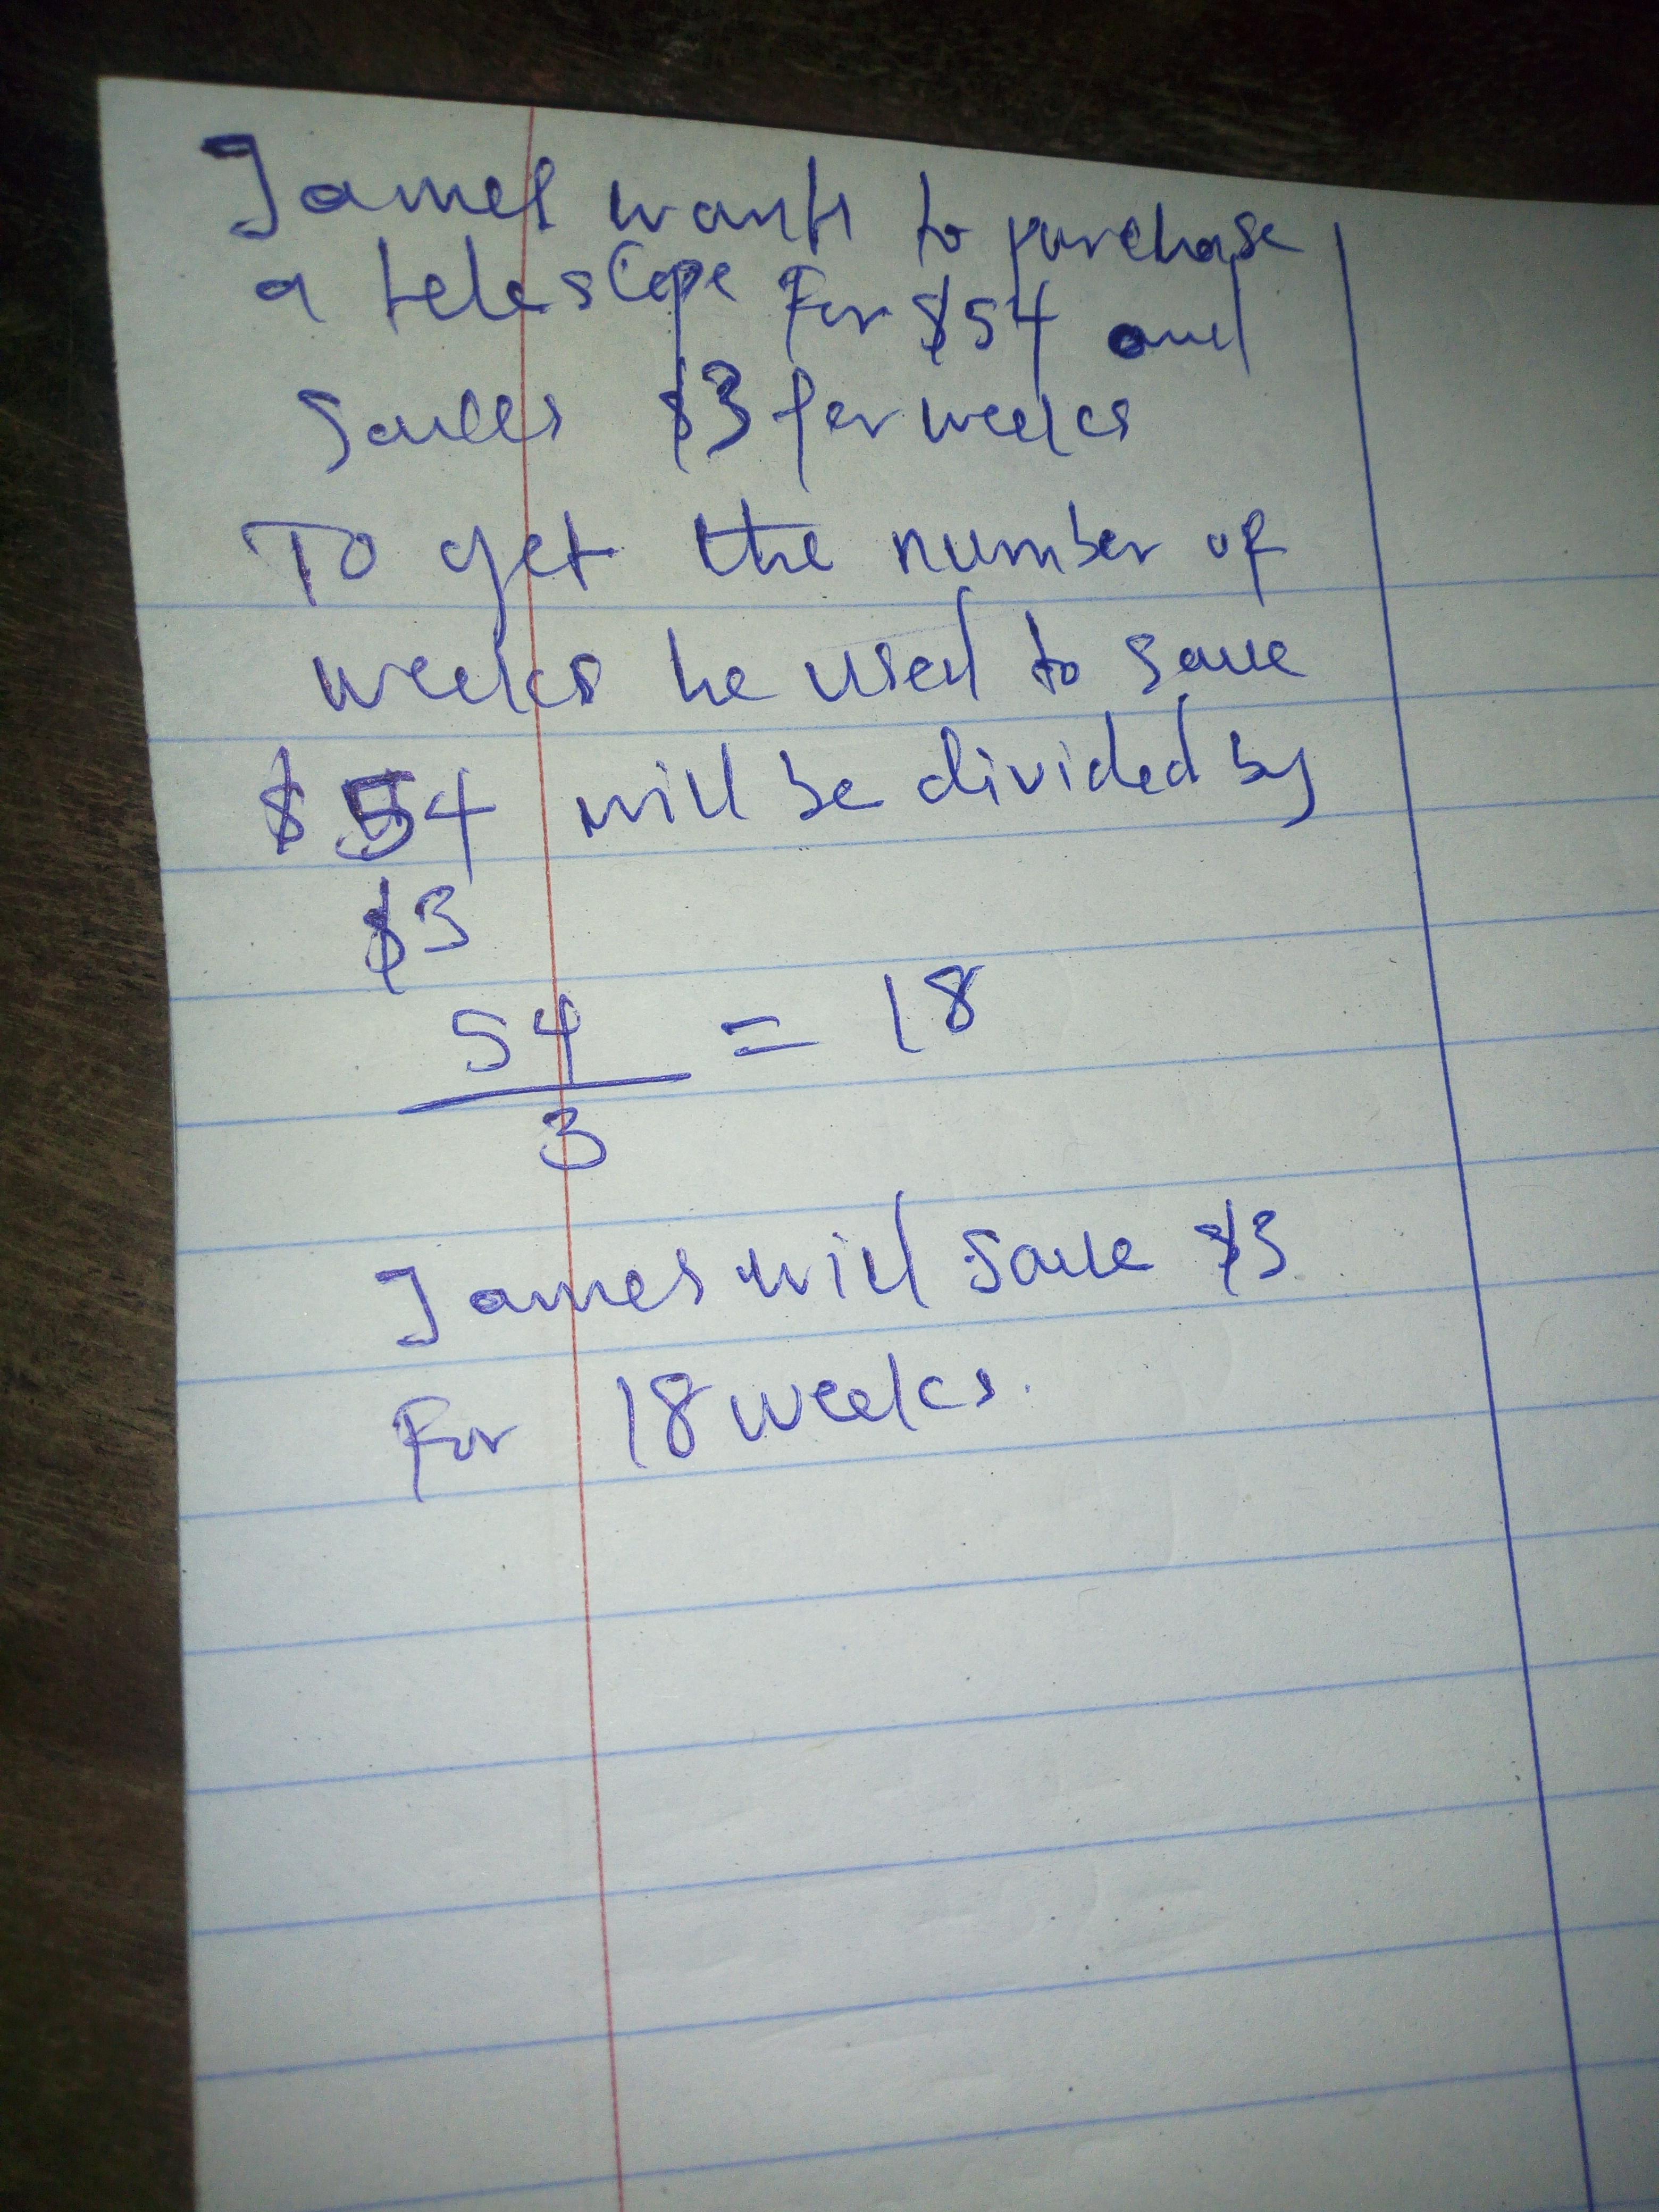 James wants to purchase
a telescope For $54 and
Saves $3 per weeks
To get the number of
weeks he used to save
$54 will be divided by
$3
54
= 18
3
James will save $3
For 18 weeks.